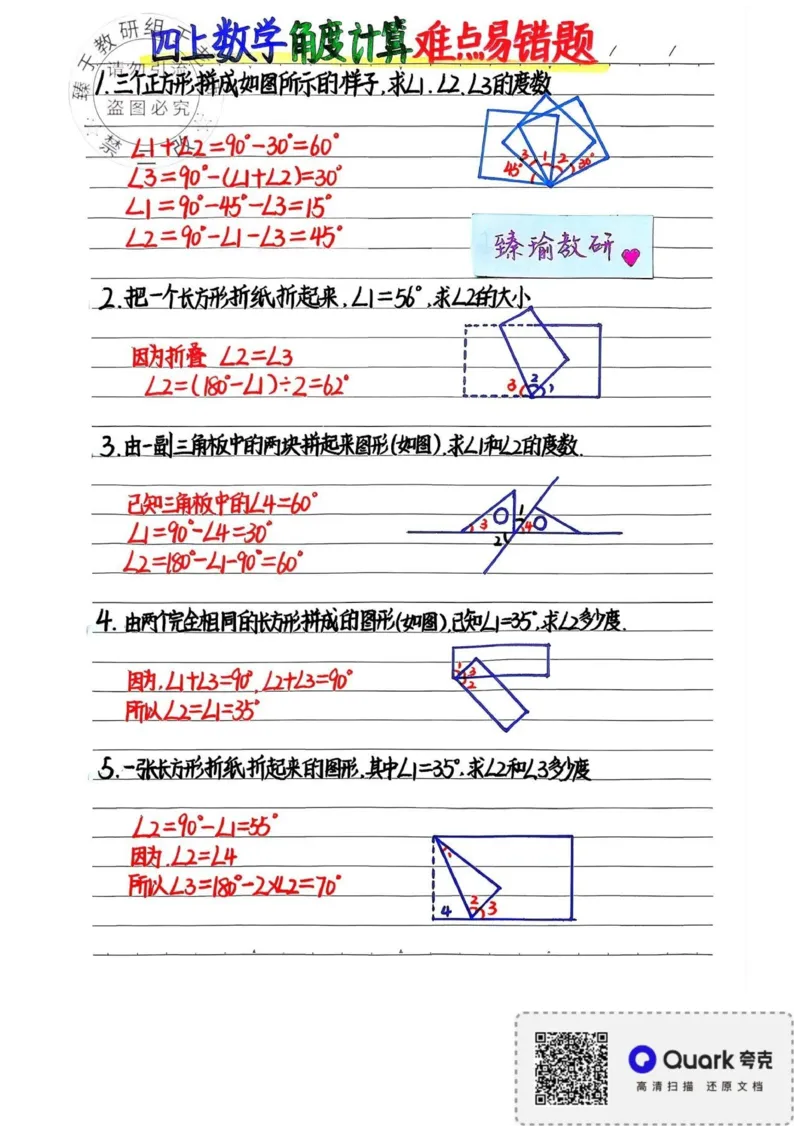 四上数学角度计算难点易错题
1.三个正方形,拼成如图所示的样子,求∠1.∠2、∠3的度数
∠1+∠2=90°-30°=60°
∠3=90°-(∠1+∠2)=30°
∠1=90°-45°-∠3=15°
∠2=90°-∠1-∠3=45°
3 1 2
45° 30°
臻瑜教研
2.把一个长方形折纸折起来,∠1=56°,求∠2的大小
因为折叠 ∠2=∠3
∠2=(180°-∠1)÷2=62°
3 2 1
3.由一副三角板中的两块拼起来图形(如图).求∠1和∠2的度数.
已知三角板中的∠4=60°
∠1=90°-∠4=30°
∠2=180°-∠1-90°=60°
3 1 4
2
4.由两个完全相同的长方形拼成的图形(如图),已知∠1=35°,求∠2多少度.
因为,∠1+∠3=90°,∠2+∠3=90°
所以∠2=∠1=35°
1 3
2
5.一张长方形折纸折起来的图形,其中∠1=35°,求∠2和∠3多少度
∠2=90°-∠1=55°
因为.∠2=∠4
所以∠3=180°-2×∠2=70°
1
4 2 3
臻于教研组
盗图必究
禁
Quark夸克
高清扫描 还原文档